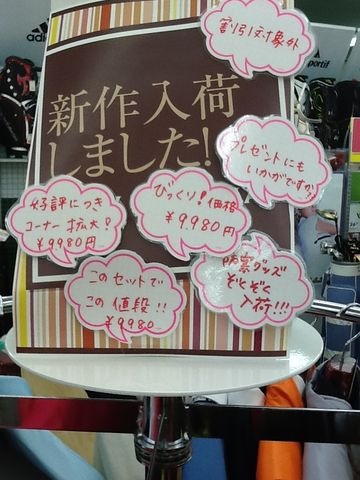 adidas
割引対象外
新作入荷
しました!
プレゼントにも
いかがですか?
好評につき
コーナー拡大!
¥9980円
びっくり!価格
¥9.980円
このセットで
この値段!!
¥9980
防寒グッズ
ぞくぞく
入荷!!!